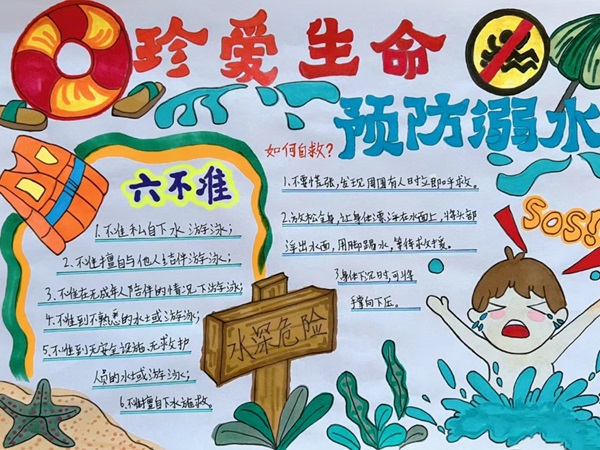 珍爱生命
预防溺水
六不准
1.不准私自下水游泳；
2.不准擅自与他人结伴游泳；
3.不准在无成年人陪伴的情况下游泳；
4.不准到不熟悉的水域游泳；
5.不准到无安全设施、无求护
人员的水域游泳；
6.不准擅自下水施救。
如何自救？
1.不要慌张，发现周围有人时立即呼救。
2.放松全身，让身体漂浮在水面上，将头部
浮出水面，用脚踢水，等待救援。
3.身体下沉时，可将
掌向下压。
水深危险
SOS!